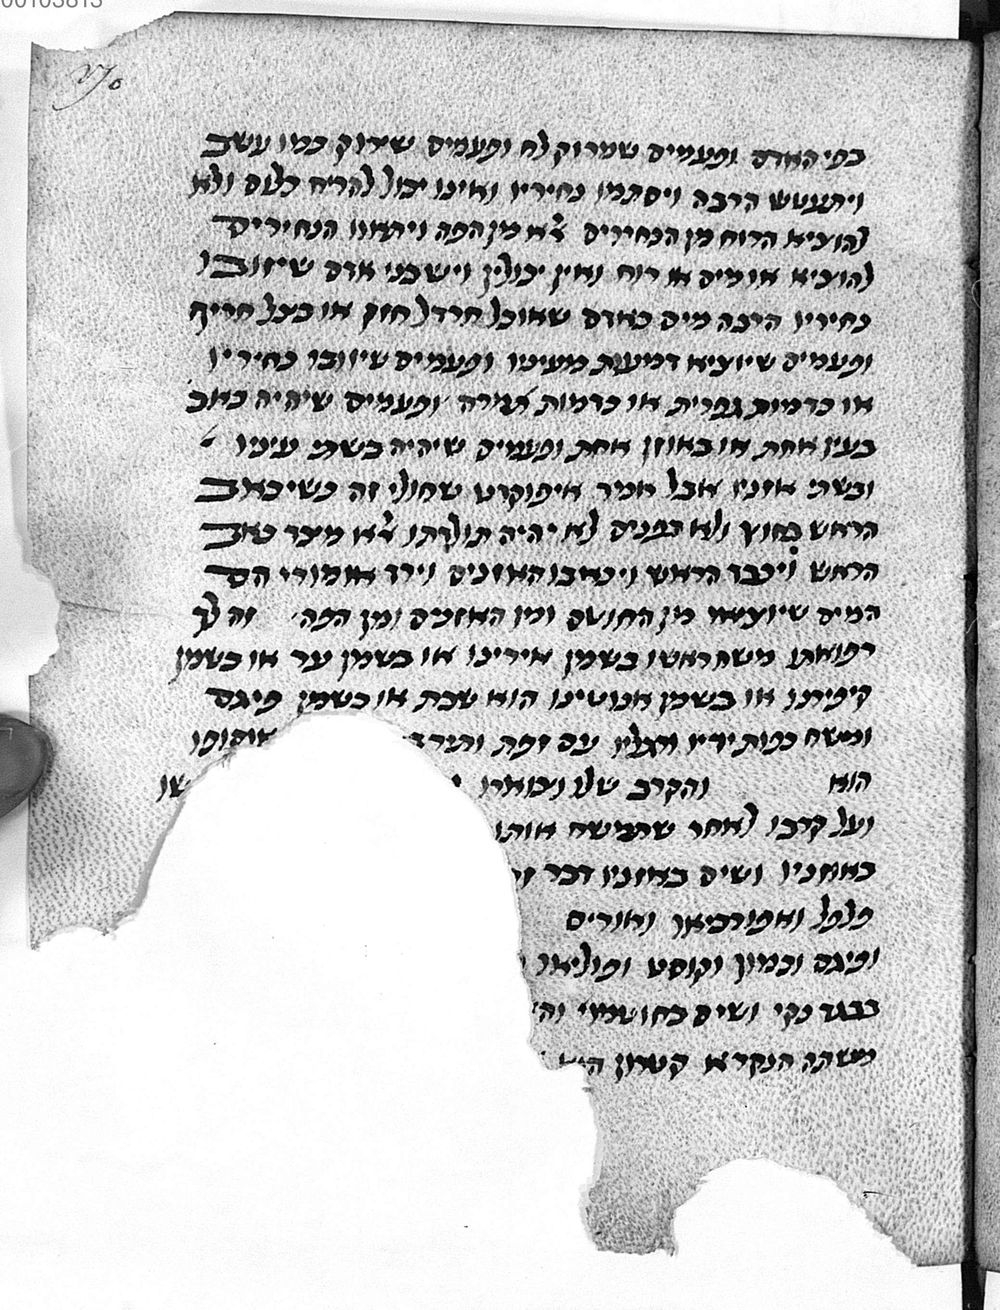 00103813
בפי האדם ופעמים שמרוק לח ופעמים שירוק כמו עשב
ויתעטש הרבה ויסתמו נחיריו ואינו יכול להריח כלום ולא
להוציא הרוח מן הנחירים אלא מן הפה הנחירים
להוציא או מים או רוח ואין יכולין ויש בני אדם שיזובו
נחיריו הרבה מים כאדם שאוכל חרדל חזק או בצל חריף
ופעמים שיוציא דמעות מעיניו ופעמים שיזובו נחיריו
או כדמות גפרית או כדמות ופעמים שיהיה כאב
בעין אחת או באוזן אחת ופעמים שיהיה בשתי עיניו
ובשתי אזניו אבל אמר איפוקרט שחולי זה כשיכאב
הראש בחוץ ולא בפנים לא יהיה תולדתו אלא מצד כאב
הראש ויכבד הראש ויכאבו האזנים וירד
המים שיוצאין מן החוטם ומן האזנים ומן הפה זה לך
רפואתו משח ראשו בשמן אירינו או בשמן ער או בשמן
או בשמן אנוטינו הוא שבת או בשמן פיגם
ומשח כפות ידיו ורגליו עם זפת
הוא והקרב שלו
ועל קרבו לאחר שתמשח אותו
באזניו ושים באזניו דבר
פלפל ואפורביאן
ופיגם וכמון וקוסט ופוליאו
בבגד נקי ושים בחוטמו
משקה הנקרא קטרון